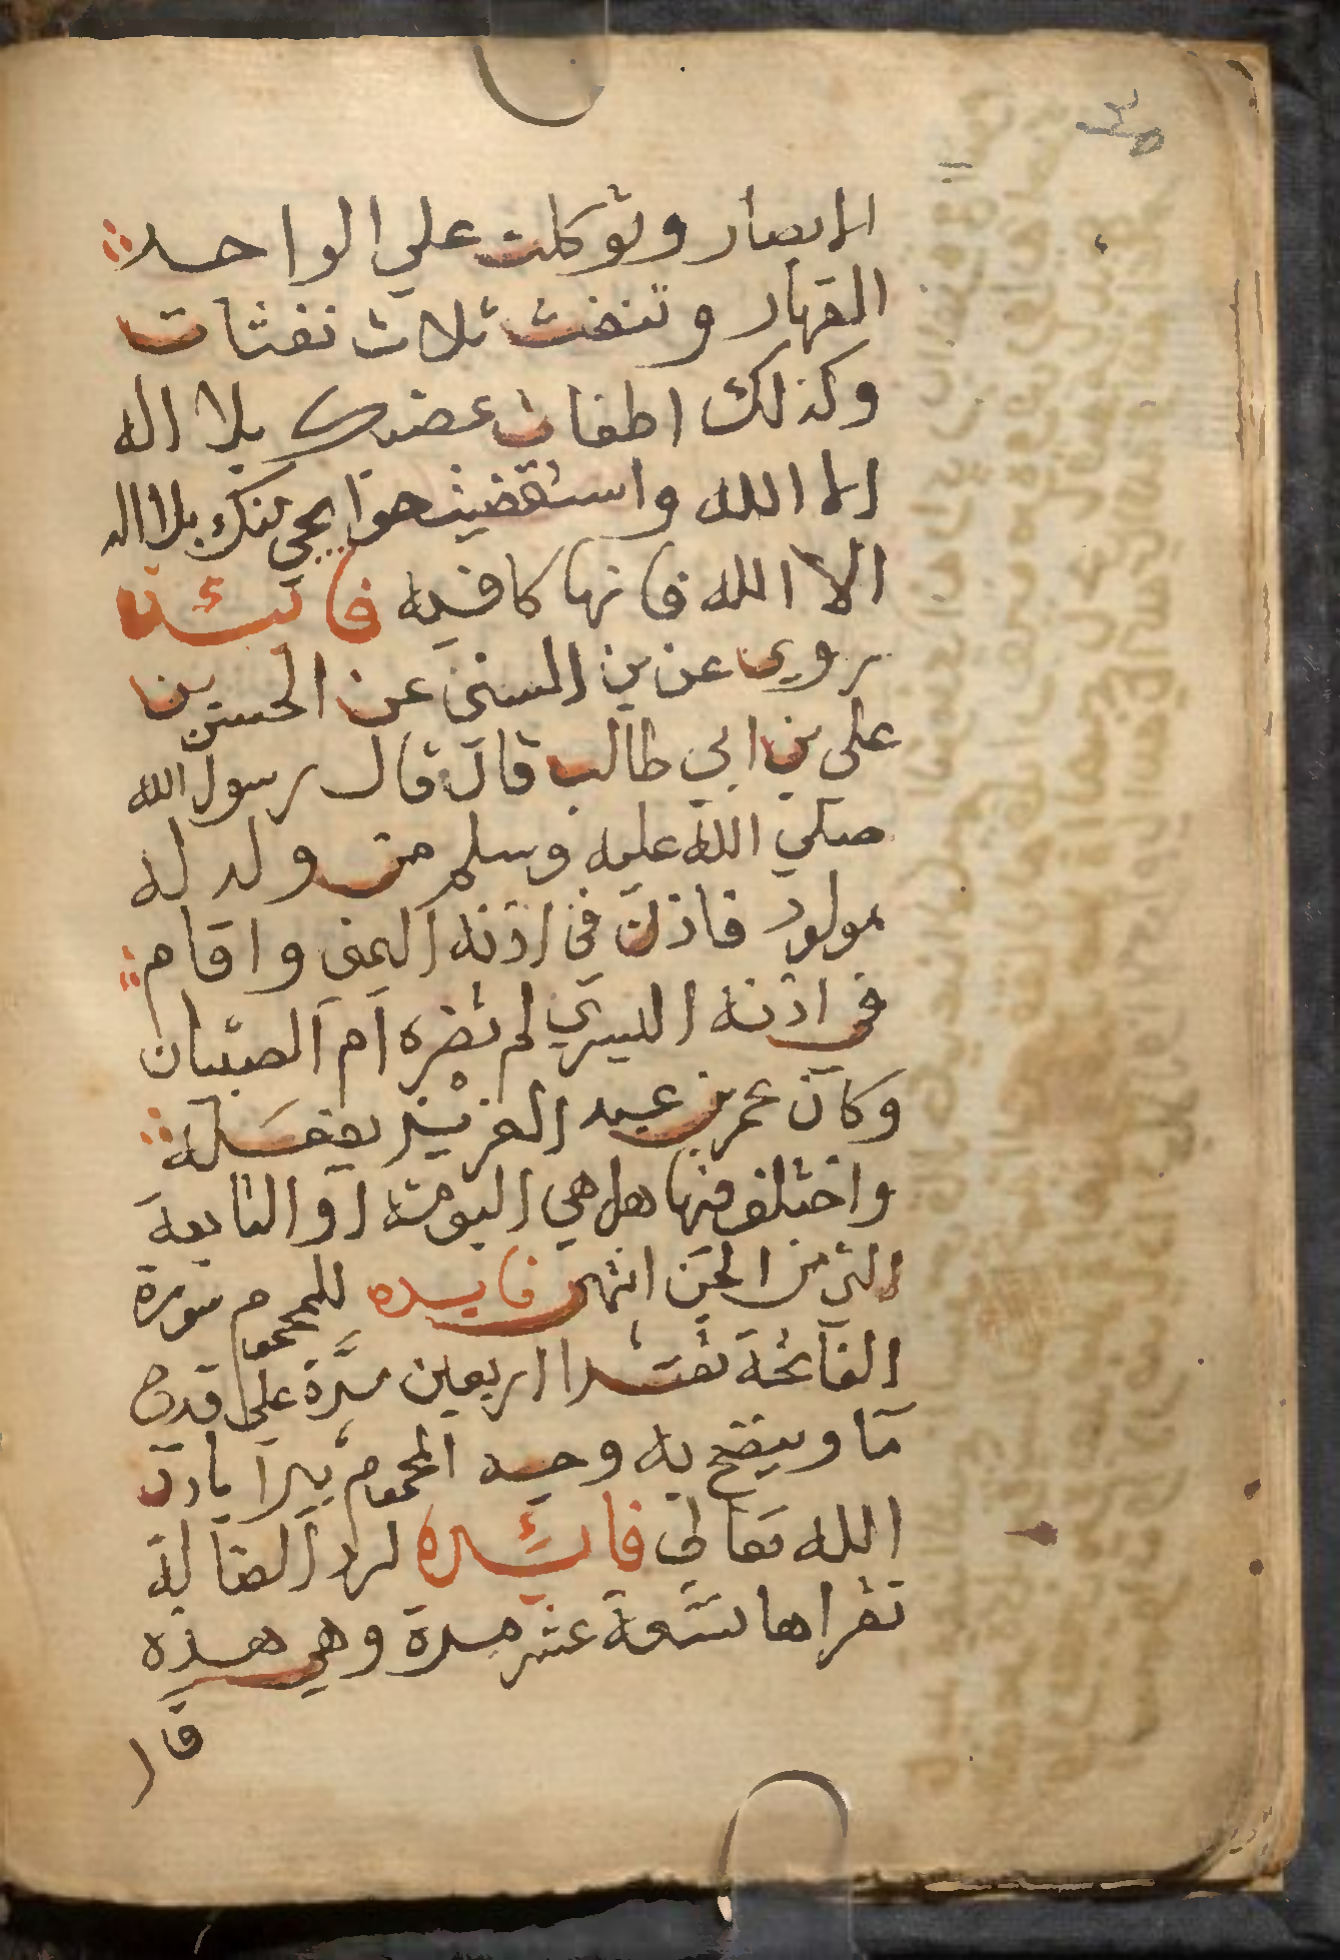 الابصار وتوكلت علي الواحد
القهار وتنفث ثلاث نفثات
وكذلك اطفات غضبك بلا اله
الا الله واستقضيت حوايجي منك بلا اله
الا الله فانها كافيه فائدة
روي عن بن السني عن الحسن بن
علي بن ابي طالب قال قال رسول الله
صلي الله عليه وسلم من ولد له
مولود فاذن في اذنه اليمني واقام
في اذنه اليسري لم تضره ام الصبيان
وكان عمر بن عبد العزيز يفعله
واختلف فيها هل هي البومة او التابعة
التي من الجن انتهي فايده للمحموم سورة
الفاتحة تقرا اربعين مرة علي قدح
ما وينضح به وجه المحموم يبرا باذن
الله تعالي فائده لرد الضالة
تقراها تسعة عشر مرة وهي هذه